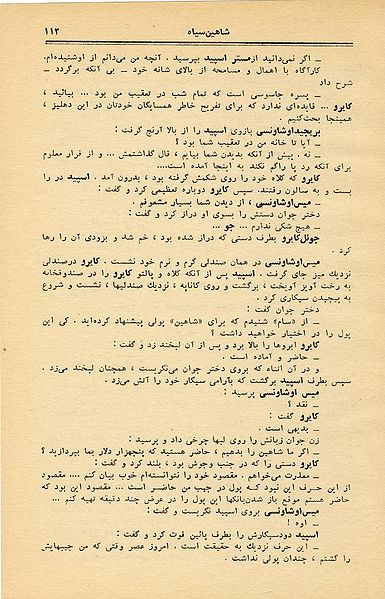 شاهین‌سیاه ۱۱۳
ـ اگر نمی‌دانید ازمستر اسپید بپرسید . آنچه من می‌دانم از اوشنیده‌ام.
کارآگاه با اهمال و مسامحه از بالای شانه خود ـ بی آنکه برگردد ـ
شرح داد
ـ پسره جاسوسی است که تمام شب در تعقیب من بود ... بیائید ،
کایرو ... فایده‌ای ندارد که برای تفریح خاطر همسایگان خودتان در این دهلیز ،
همینجا بحث‌کنیم .
بریجیداوشاونسی بازوی اسپید را از بالا آرنج گرفت :
ـ آیا تا خانه من در تعقیب شما بود ؟
ـ نه . پیش از آنکه بدیدن شما بیایم ، قال گذاشتمش ... و از قرار معلوم
برای آنکه رد پا راگم نکند به اینجا آمده است....
کایرو که کلاه خود را روی شکمش گرفته بود ، بدرون آمد . اسپید در را
بست و به سالون رفتند. سپس کایرو دوباره تعظیمی کرد و گفت :
ـ میس‌اوشاونسی ، از دیدن شما بسیار مشعوفم .
دختر جوان دستش را بسوی او دراز کرد و گفت :
ـ هیچ شکی ندارم ... جو ...
جوئل‌کایرو بطرف دستی که دراز شده بود ، خم شد و بزودی آن را رها
کرد .
میس‌اوشاونسی در همان صندلی گرم و نرم خود نشست . کایرو درصندلی
نزدیک میز جای گرفت . اسپید پس از آنکه کلاه و پالتو کایرو را در صندوقخانه
به رخت آویز آویخت ، برگشت و روی کاناپه ، نزدیک صندلیها ، نشست و شروع
به پیچیدن سیگاری کرد .
دختر جوان گفت :
ـ از «سام» شنیدم که برای «شاهین» پولی پیشنهاد کرده‌اید . کی این
پول را در اختیار خواهید داشت ؟
کایرو ابروها را بالا برد و پس از آن لبخند زد و گفت :
ـ حاضر و آماده است .
و در آن اثناء که بروی دختر جوان می‌نگریست ، همچنان لبخند می‌زد .
سپس بطرف اسپید برگشت که بآرامی سیگار خود را آتش می‌زد.
میس اوشاونسی پرسید :
ـ نقد ؟
کایرو گفت :
ـ بدیهی است .
زن جوان زبانش را روی لبها چرخی داد و پرسید :
ـ اگر ما شاهین را بدهیم ، حاضر هستید که پنجهزار دلار بما بپردازید ؟
کایرو دستی را که در جنب وجوش بود ، بلند کرد و گفت :
ـ معذرت می‌خواهم . مقصود خود را نتوانسته‌ام خوب بیان کنم .... مقصود
از این حرف این نبود کـه پول در جیب من حاضـر است ... مقصود این بود که
حاضر هستم موقع باز شدن‌بانکها این پول را در عرض چند دقیقه تهیه کنم ...
میس‌اوشاونسی بروی اسپید نگریست و گفت :
ـ اوه !
اسپید دودسیگارش را بطرف پائین فوت کرد و گفت :
ـ این حرف نزدیک به حقیقت است . امروز عصر وقتی که من جیبهایش
را گشتم ، چندان پولی نداشت .